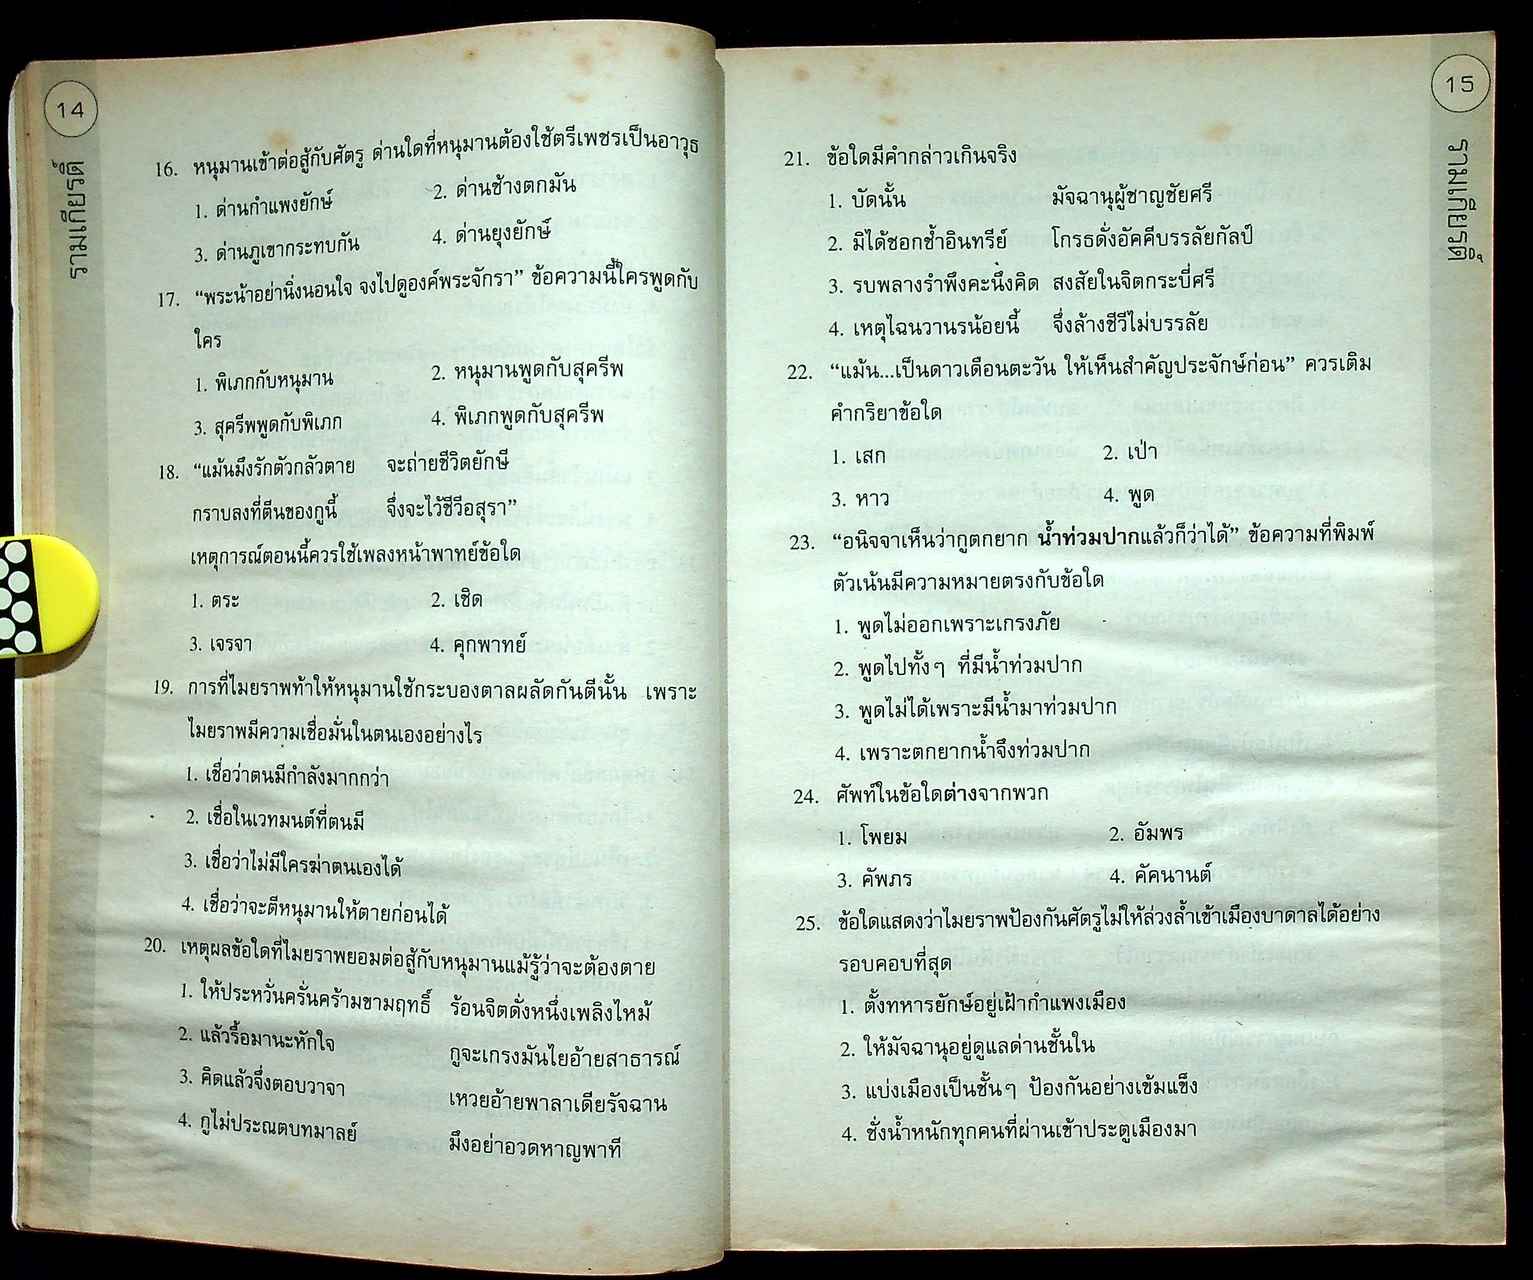 14
รามเกียรติ์
16. หนุมานเข้าต่อสู้กับศัตรู ด่านใดที่หนุมานต้องใช้ตรีเพชรเป็นอาวุธ
1. ด่านกำแพงยักษ์ 2. ด่านช้างตกมัน
3. ด่านภูเขากระทบกัน 4. ด่านยุงยักษ์
17. “พระน้าอย่านิ่งนอนใจ จงไปดูองค์พระจักรา” ข้อความนี้ใครพูดกับ
ใคร
1. พิเภกกับหนุมาน 2. หนุมานพูดกับสุครีพ
3. สุครีพพูดกับพิเภก 4. พิเภกพูดกับสุครีพ
18. “แม้นมึงรักตัวกลัวตาย จะถ่ายชีวิตยักษี
กราบลงที่ตีนของกูนี้ จึ่งจะไว้ชีวีอสุรา”
เหตุการณ์ตอนนี้ควรใช้เพลงหน้าพาทย์ข้อใด
1. ตระ 2. เชิด
3. เจรจา 4. คุกพาทย์
19. การที่ไมยราพท้าให้หนุมานใช้กระบองตาลผลัดกันตีนั้น เพราะ
ไมยราพมีความเชื่อมั่นในตนเองอย่างไร
1. เชื่อว่าตนมีกำลังมากกว่า
2. เชื่อในเวทมนต์ที่ตนมี
3. เชื่อว่าไม่มีใครฆ่าตนเองได้
4. เชื่อว่าจะตีหนุมานให้ตายก่อนได้
20. เหตุผลข้อใดที่ไมยราพยอมต่อสู้กับหนุมานแม้รู้ว่าจะต้องตาย
1. ให้ประหวั่นครั่นคร้ามขามฤทธิ์ ร้อนจิตดั่งหนึ่งเพลิงไหม้
2. แล้วรื้อมานะหักใจ กูจะเกรงมันไยอ้ายสาธารณ์
3. คิดแล้วจึ่งตอบวาจา เหวยอ้ายพาลาเดียรัจฉาน
4. กูไม่ประณตบทมาลย์ มึงอย่าอวดหาญพาที
15
รามเกียรติ์
21. ข้อใดมีคำกล่าวเกินจริง
1. บัดนั้น มัจฉานุผู้ชาญชัยศรี
2. มิได้ชอกช้ำอินทรีย์ โกรธดั่งอัคคีบรรลัยกัลป์
3. รบพลางรำพึงคะนึงคิด สงสัยในจิตกระบี่ศรี
4. เหตุไฉนวานรน้อยนี้ จึ่งล้างชีวีไม่บรรลัย
22. “แม้น...เป็นดาวเดือนตะวัน ให้เห็นสำคัญประจักษ์ก่อน” ควรเติม
คำกริยาข้อใด
1. เสก 2. เป่า
3. หาว 4. พูด
23. “อนิจจาเห็นว่ากูตกยาก น้ำท่วมปากแล้วก็ว่าได้” ข้อความที่พิมพ์
ตัวเน้นมีความหมายตรงกับข้อใด
1. พูดไม่ออกเพราะเกรงภัย
2. พูดไปทั้งๆ ที่มีน้ำท่วมปาก
3. พูดไม่ได้เพราะมีน้ำมาท่วมปาก
4. เพราะตกยากน้ำจึงท่วมปาก
24. ศัพท์ในข้อใดต่างจากพวก
1. โพยม 2. อัมพร
3. คัพภร 4. คัคนานต์
25. ข้อใดแสดงว่าไมยราพป้องกันศัตรูไม่ให้ล่วงล้ำเข้าเมืองบาดาลได้อย่าง
รอบคอบที่สุด
1. ตั้งทหารยักษ์อยู่เฝ้ากำแพงเมือง
2. ให้มัจฉานุอยู่ดูแลด่านชั้นใน
3. แบ่งเมืองเป็นชั้นๆ ป้องกันอย่างเข้มแข็ง
4. ชั่งน้ำหนักทุกคนที่ผ่านเข้าประตูเมืองมา